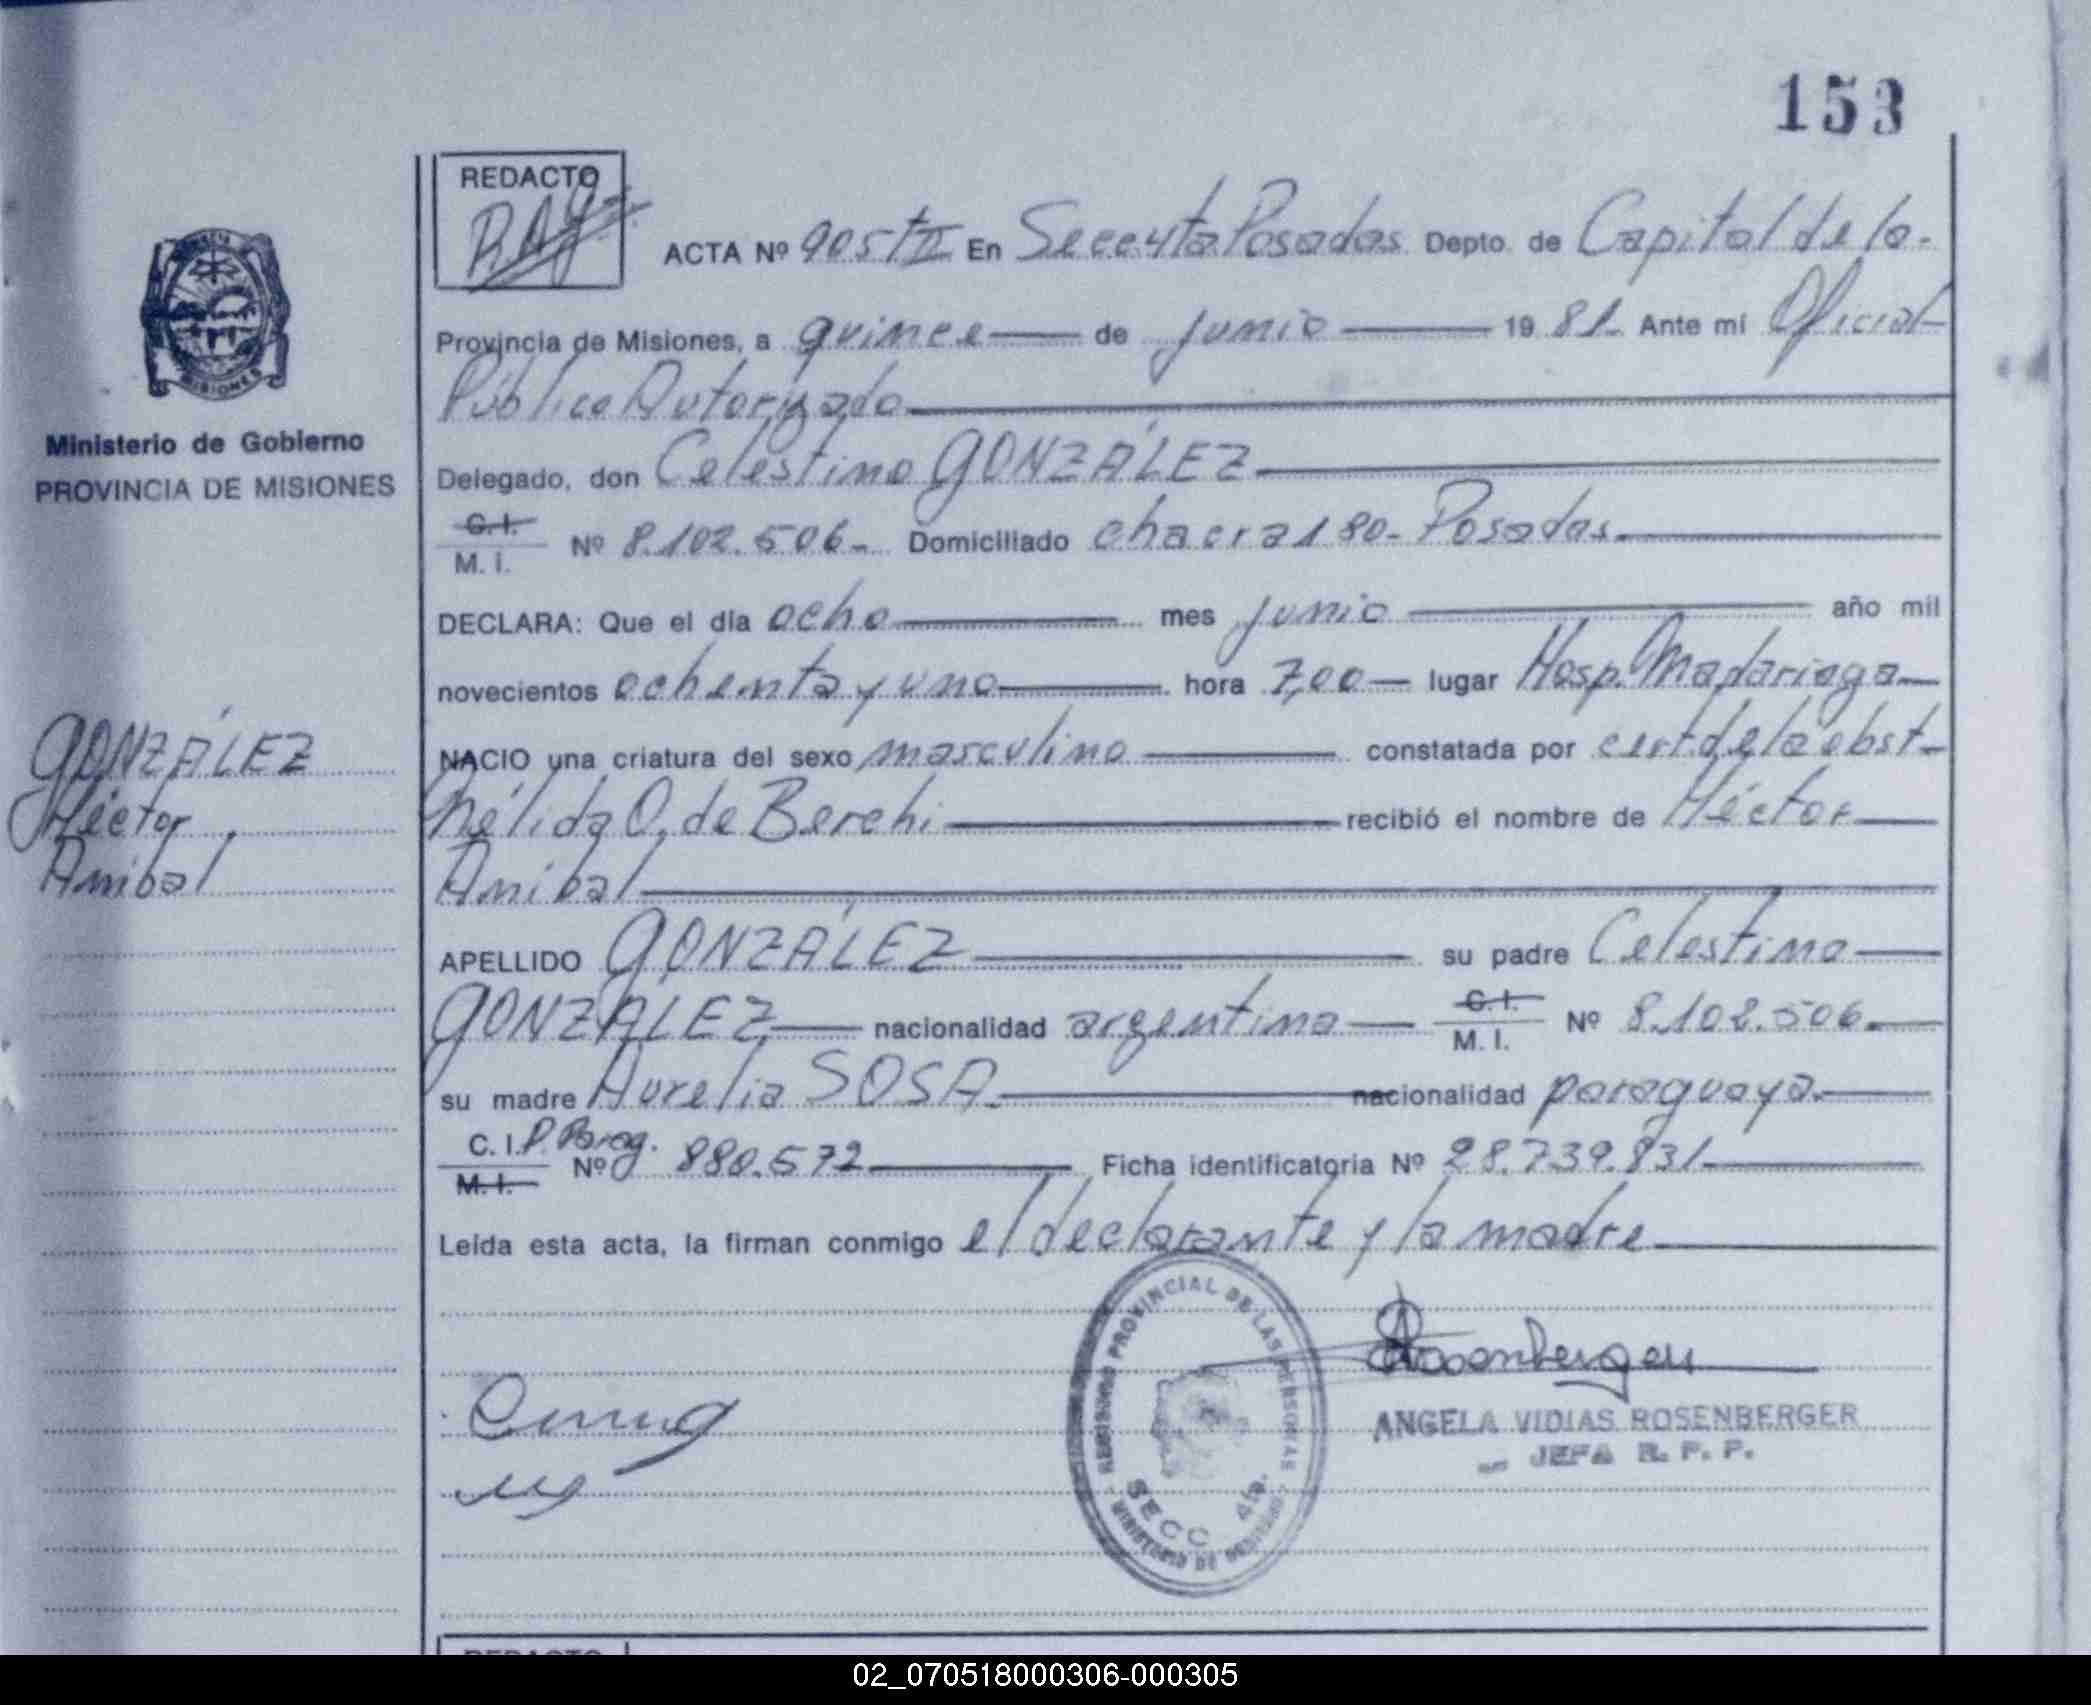 153
REDACTO
ACTA Nº 905 tº II En Secc 4ta Posadas Depto. de Capital de la
Provincia de Misiones, a quince de junio 1981. Ante mí Oficial
Público Autorizado
Ministerio de Gobierno
PROVINCIA DE MISIONES
MISIONES
Delegado, don Celestino GONZÁLEZ
C. I.
M. I. Nº 8.102.506. Domiciliado chacra 180. Posadas.
DECLARA: Que el día ocho mes junio año mil
novecientos ochenta y uno hora 7,00 lugar Hosp. Madariaga
NACIO una criatura del sexo masculino constatada por cert. de la obst.
Nélida O. de Berchi recibió el nombre de Héctor
Aníbal
GONZÁLEZ
Héctor
Aníbal
APELLIDO GONZÁLEZ su padre Celestino
GONZÁLEZ nacionalidad argentina C. I. M. I. Nº 8.102.506.
su madre Aurelia SOSA nacionalidad paraguaya
C. I. P. Parag.
M. I. Nº 880.572 Ficha identificatoria Nº 28.739.831
Leída esta acta, la firman conmigo el declarante y la madre
REGISTRO PROVINCIAL DE LAS PERSONAS
SECC 4ta.
MINISTERIO DE GOBIERNO
Rosenberger
ANGELA VIDIAS ROSENBERGER
JEFA R. P. P.
REDACTO
02_070518000306-000305